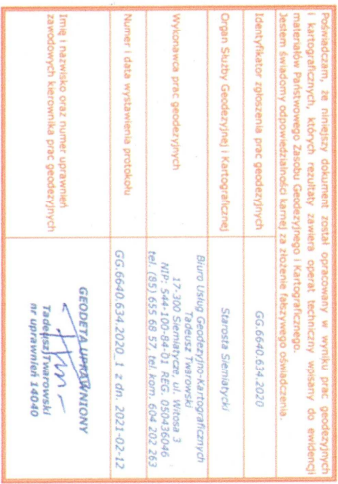 Poświadczam, że niniejszy dokument został opracowany w wyniku prac geodezyjnych
i kartograficznych, których rezultaty zawiera operat techniczny wpisany do ewidencji
materiałów Państwowego Zasobu Geodezyjnego i Kartograficznego.
Jestem świadomy odpowiedzialności karnej za złożenie fałszywego oświadczenia
Identyfikator zgłoszenia prac geodezyjnych
GG.6640.634.2020
Organ Służby Geodezyjnej i Kartograficznej
Starosta Siemiatycki
Wykonawca prac geodezyjnych
Biuro Usług Geodezyjno-Kartograficznych
Tadeusz Twarowski
17-300 Siemiatycze, ul. Witosa 3
NIP: 544-100-84-01 REG. 050436046
tel. (85) 655 68 57 tel. kom. 604 202 263
Numer i data wystawienia protokołu
GG.6640.634.2020_1 z dn. 2021-02-12
Imię i nazwisko oraz numer uprawnień
zawodowych kierownika prac geodezyjnych
GEODETA UPRAWNIONY
Tadeusz Twarowski
nr uprawnień 14040